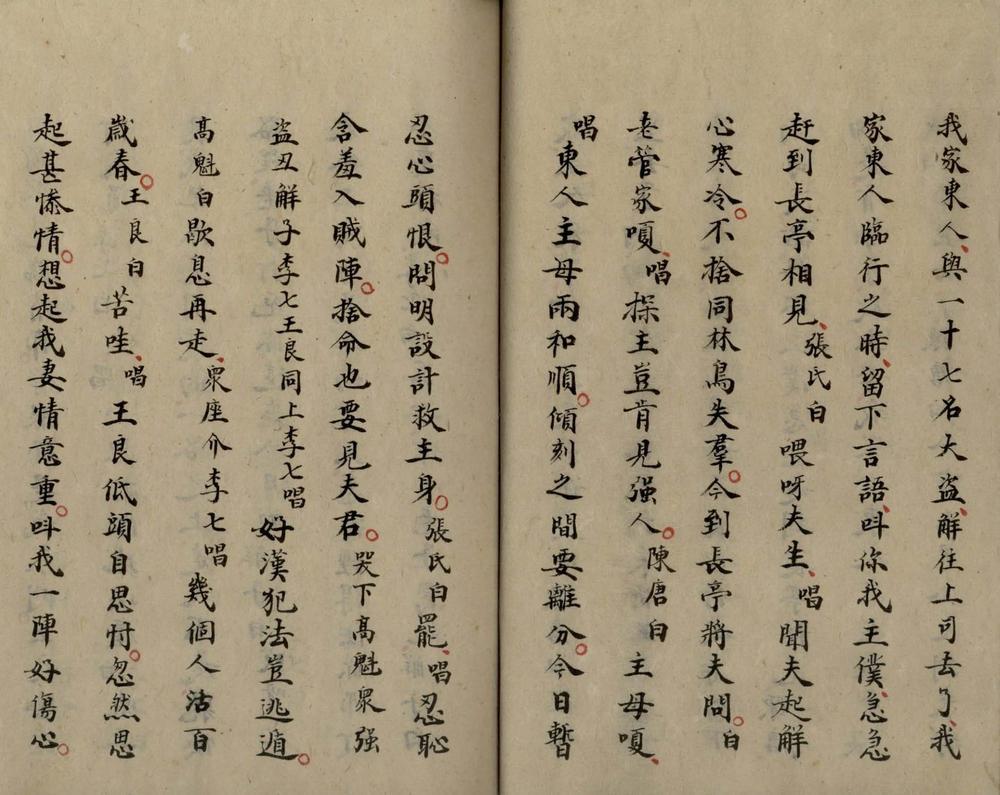 我家東人、與一十七名大盜、解往上司去了、我
家東人臨行之時、留下言語、呌你我主僕、急急
赶到長亭相見、張氏白喂呀夫生、唱聞夫起解
心寒冷。不捨同林鳥失羣。今到長亭將夫問。白
老管家嗄、唱探主豈肯見强人。陳唐白主母嗄、
唱東人主母兩和順。傾刻之間要離分。今日暫
忍心頭恨。問明設計救主身。張氏白罷、唱忍恥
含羞入賊陣。捨命也要見夫君。哭下高魁眾强
盜丑解子李七王良同上李七唱好漢犯法豈逃遁。
高魁白歇息再走、眾座介李七唱幾個人活百
歲春。王良白苦哇、唱王良低頭自思忖。忽然思
起甚慘情。想起我妻情意重。呌我一陣好傷心。